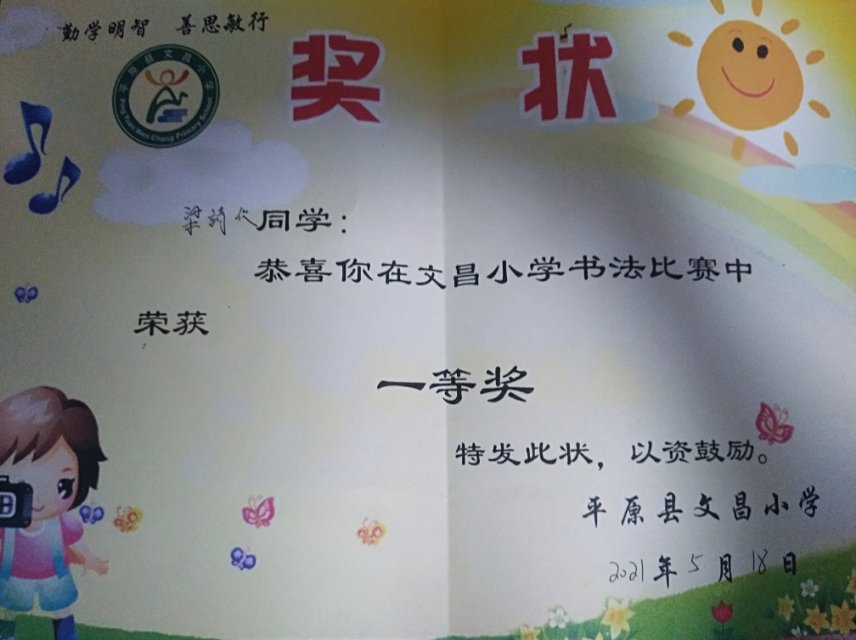 勤学明智 善思敏行
平原县文昌小学
Ping Yuan Wen Chang Primary School
奖状
梁靖代同学：
恭喜你在文昌小学书法比赛中
荣获
一等奖
特发此状，以资鼓励。
平原县文昌小学
2021年5月18日